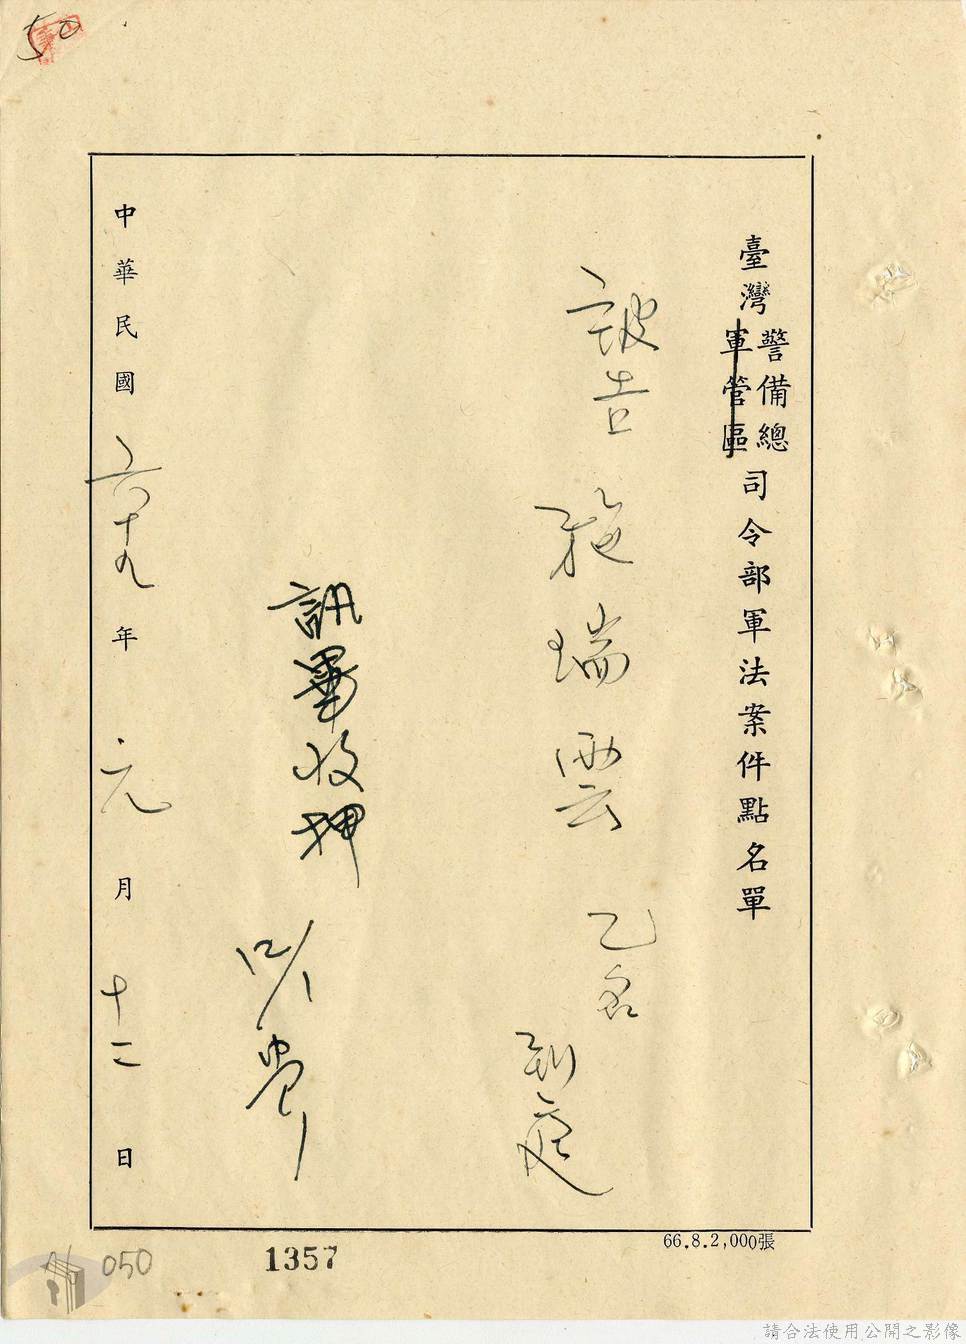 50
臺灣警備總軍管區司令部軍法案件點名單
被告 施瑞雲 乙名
到庭
訊畢收押
中華民國六十九年元月十二日
66.8.2,000張
050
1357
請合法使用公開之影像